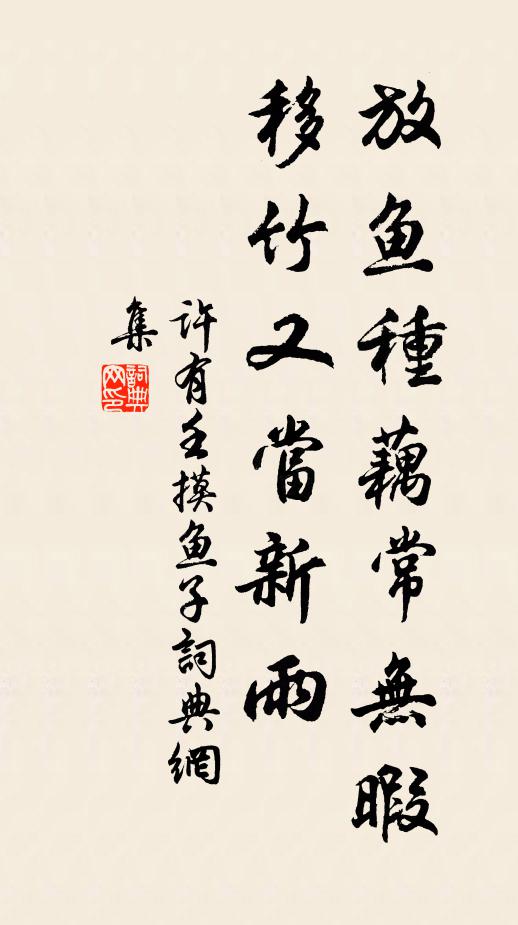 放鱼種藕常無暇
移竹又當新雨
許有壬摸鱼子詞典網
集
詞典网印